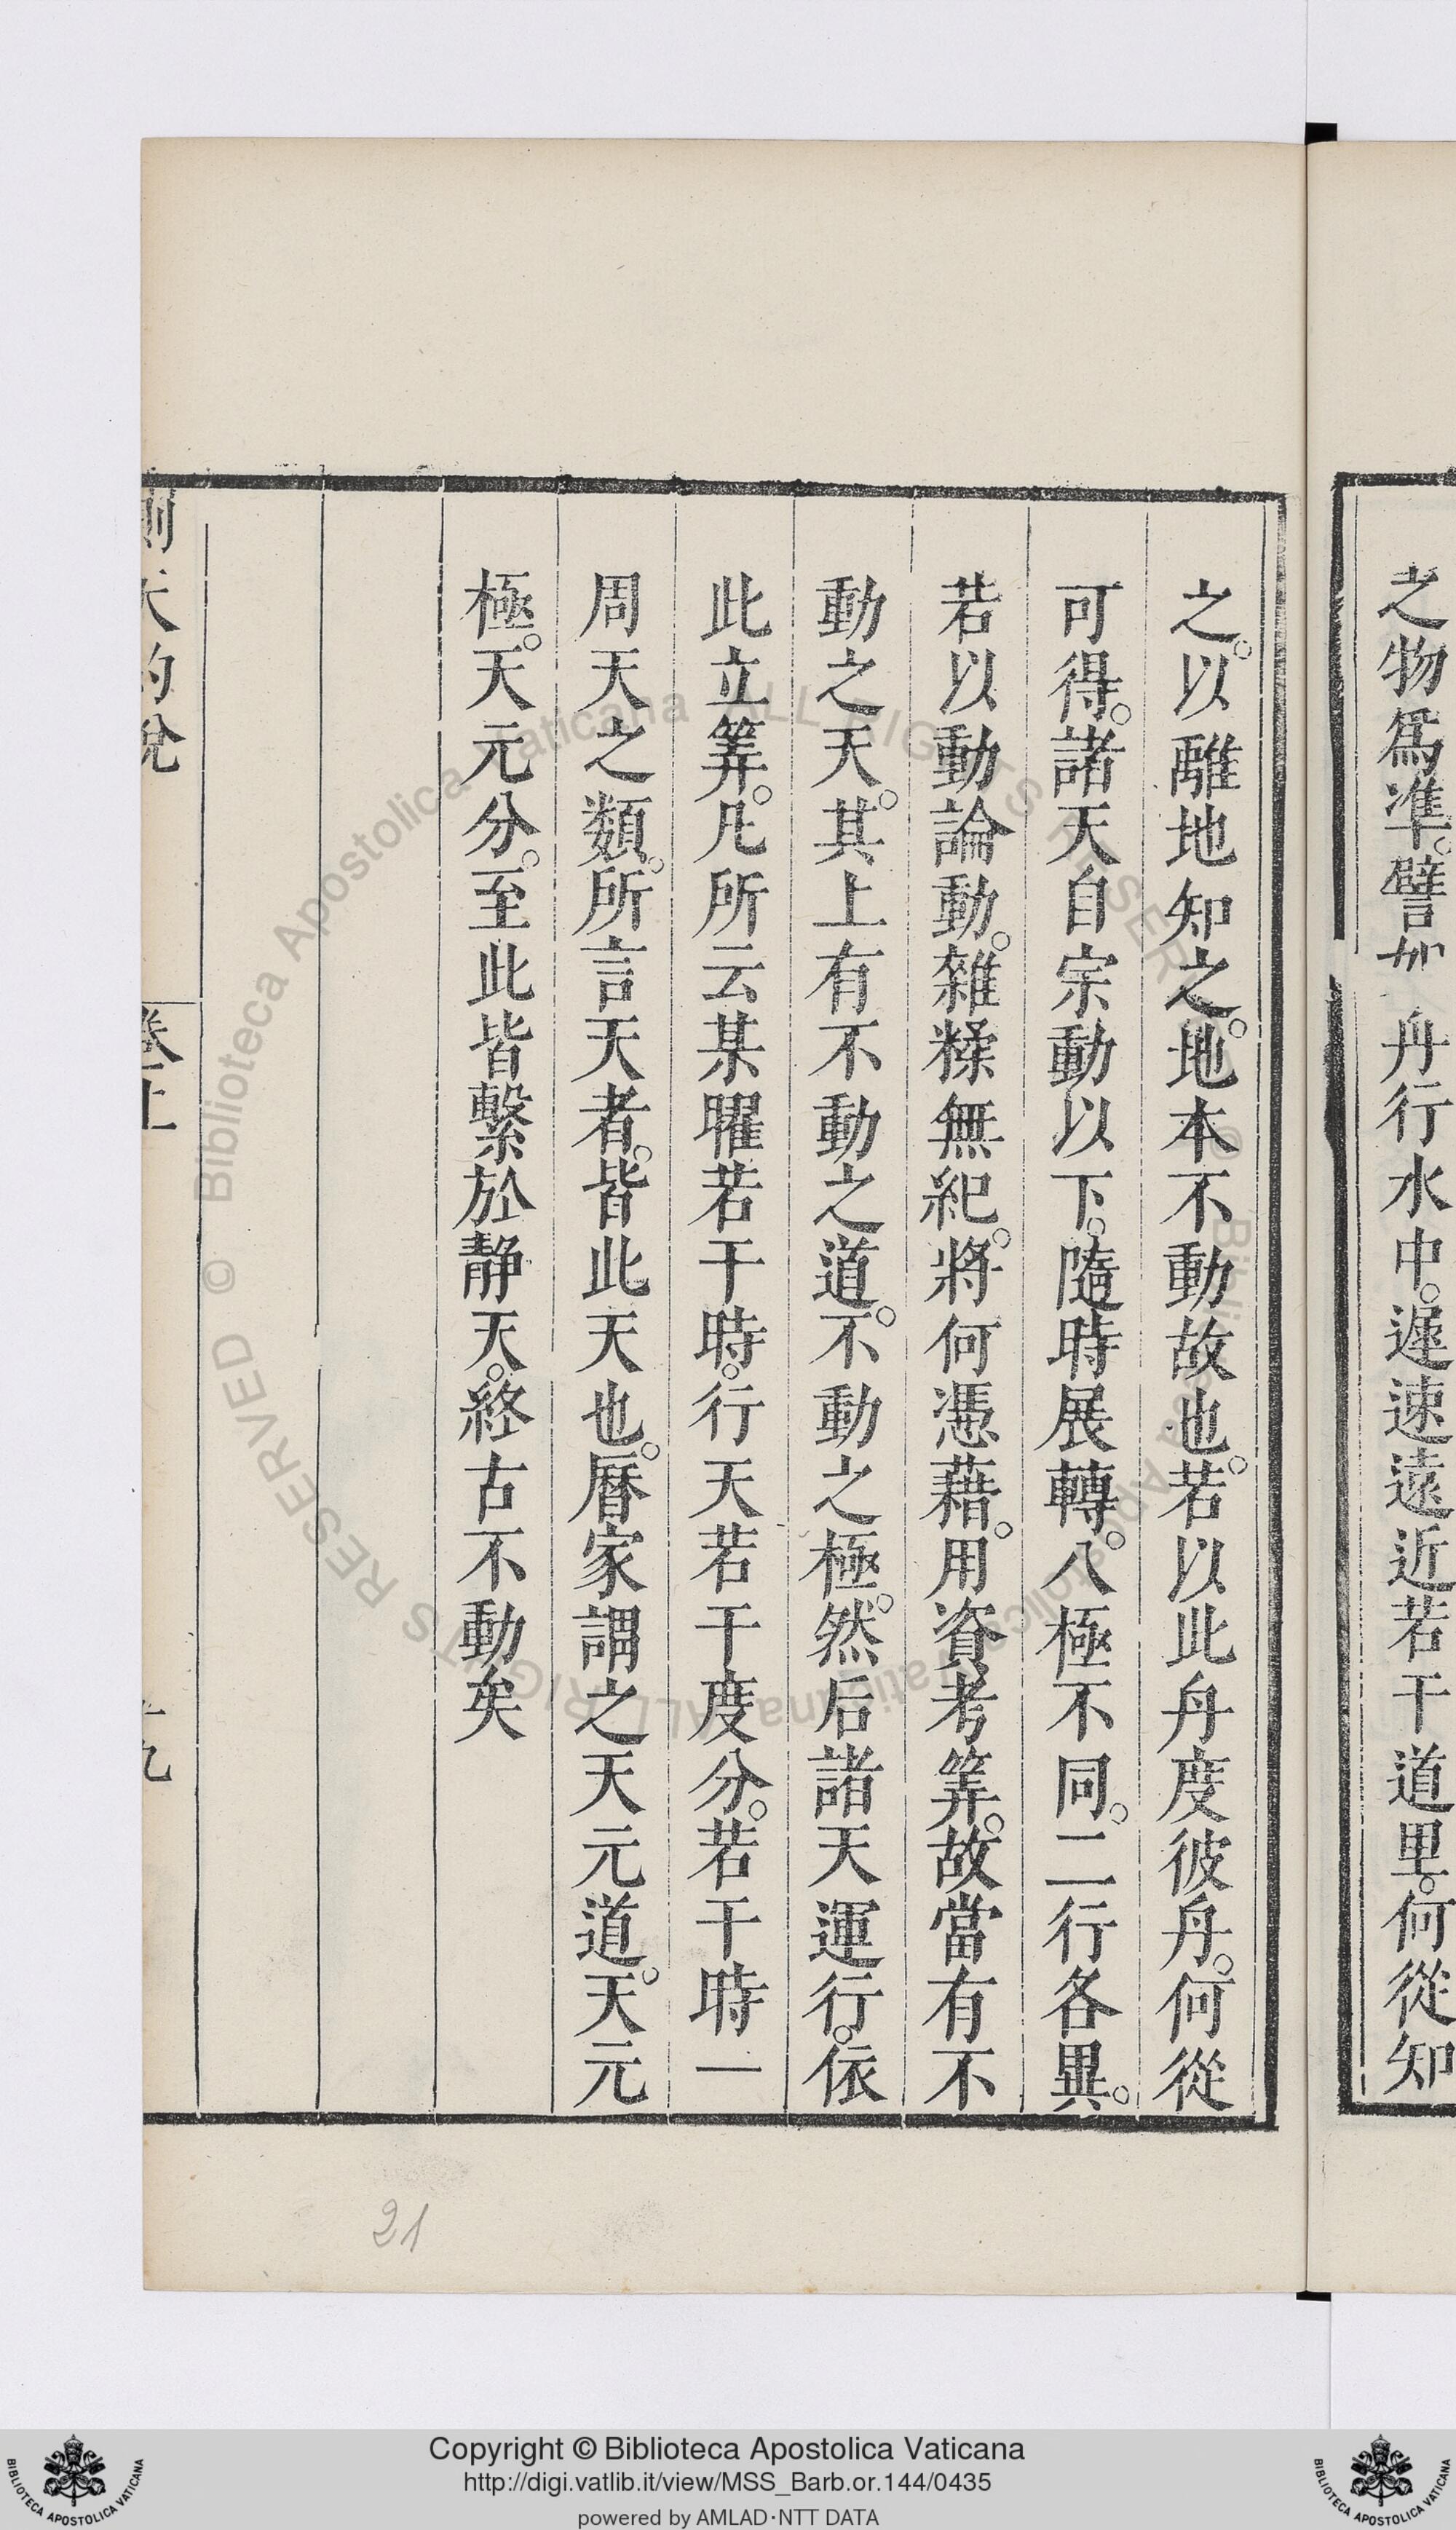 之物爲準。譬如舟行水中。遲速遠近若干道里。何從知
之。以離地知之。地本不動故也。若以此舟度彼舟。何從
可得。諸天自宗動以下。隨時展轉。八極不同。二行各異。
若以動論動。雜糅無紀。將何憑藉。用資考筭。故當有不
動之天。其上有不動之道。不動之極。然后諸天運行。依
此立筭。凡所云某曜若干時。行天若干度分。若干時一
周天之類。所言天者。皆此天也。曆家謂之天元道。天元
極。天元分。至此皆繫於静天。終古不動矣
測天約說
卷上
九
21
© Biblioteca Apostolica Vaticana ALL RIGHTS RESERVED
Copyright © Biblioteca Apostolica Vaticana
http://digi.vatlib.it/view/MSS_Barb.or.144/0435
powered by AMLAD·NTT DATA
BIBLIOTECA APOSTOLICA VATICANA
BIBLIOTECA APOSTOLICA VATICANA